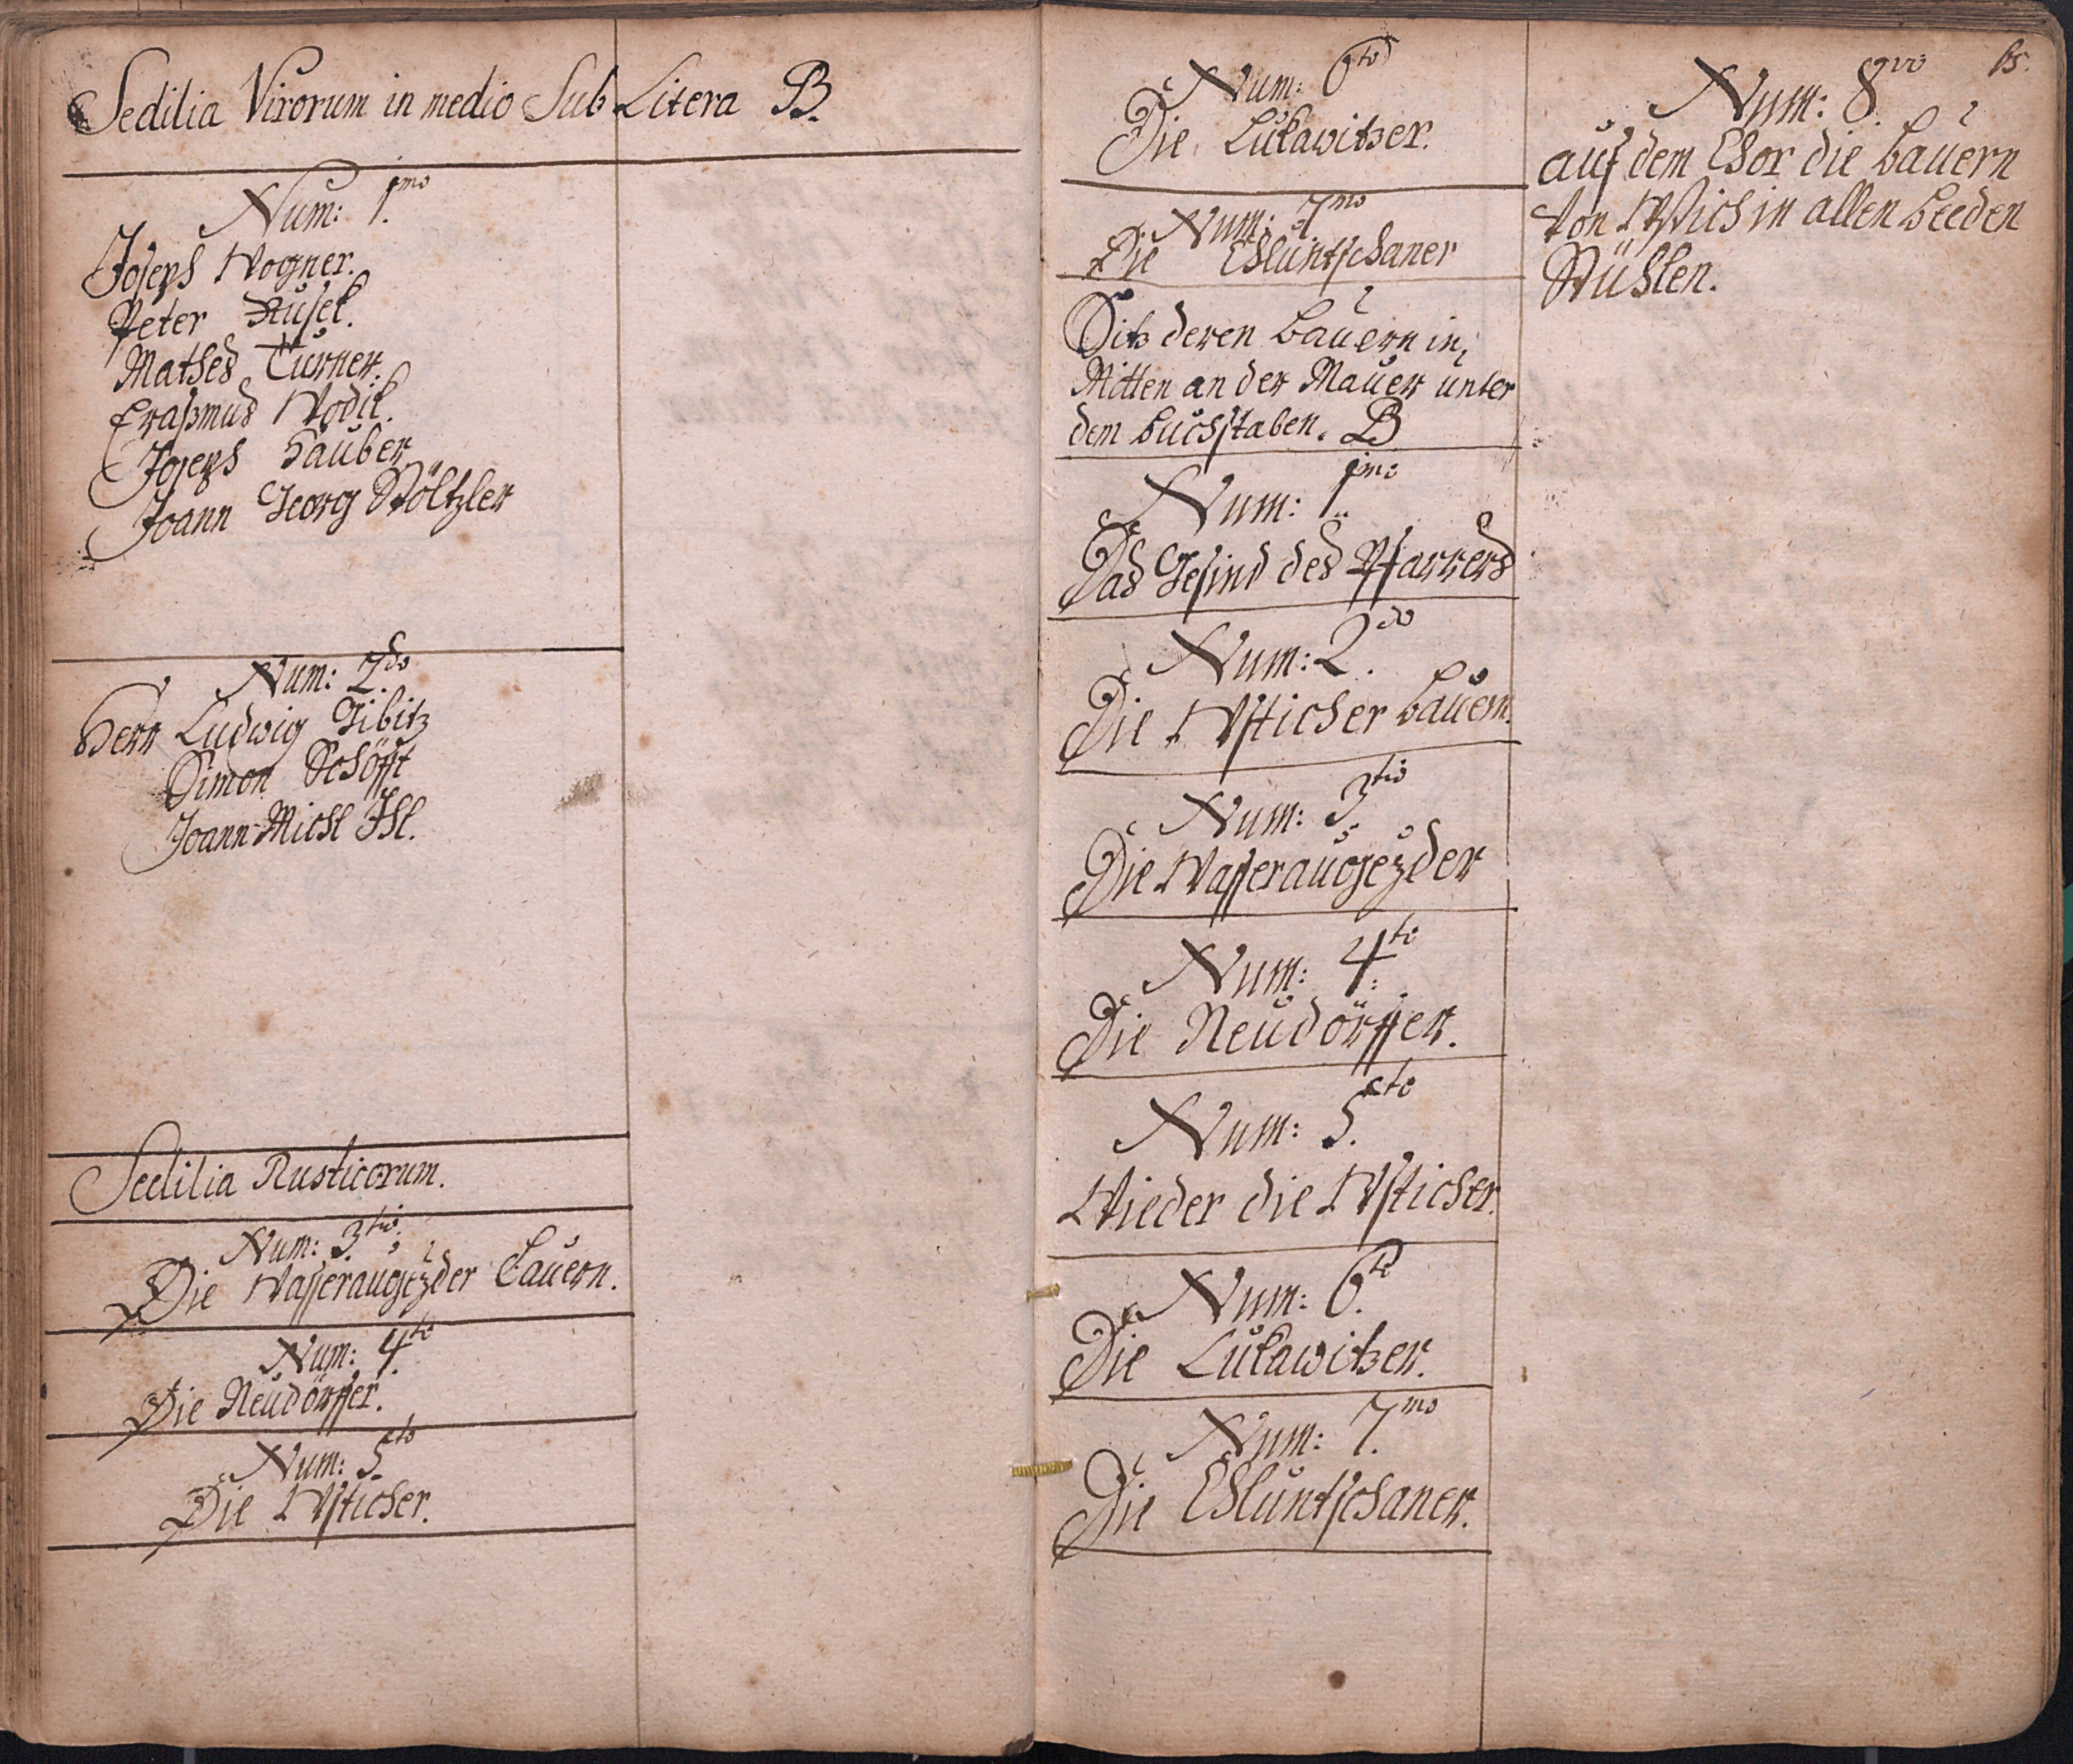 Sedilia Virorum in medio Sub Litera B.
Num: 1mo
Joseph Wogner.
Peter Rusek.
Mathes Turner.
Eraßmus Wodik.
Joseph Hauber
Joann Georg Stöltzler
Num: 2do
Herr Ludwig Tibitz
Simon Schöfft
Joann Michl Ihl.
Sedilia Rusticorum.
Num: 3tio.
Die Wasseraugezder Bauern.
Num: 4to
Die Neudörffer.
Num: 5to
Die Wsticher.
Num: 6to
Die Lukawitzer.
Num: 7mo
Die Chluntschaner
Sitz deren Bauern in
Mitten an der Mauer unter
dem buchstaben. B
Num: 1mo
Das Gesind des Pfarrers
Num: 2do
Die Wsticher Bauern.
Num: 3tio
Die Wasseraugezder
Num: 4to
Die Neudörffer.
Num: 5to
Wieder die Wsticher.
Num: 6to
Die Lukawitzer.
Num: 7mo
Die Chluntschaner.
65.
Num: 8vo
auf dem Chor die Bauern
von Wstich in allen beeden
Stühlen.